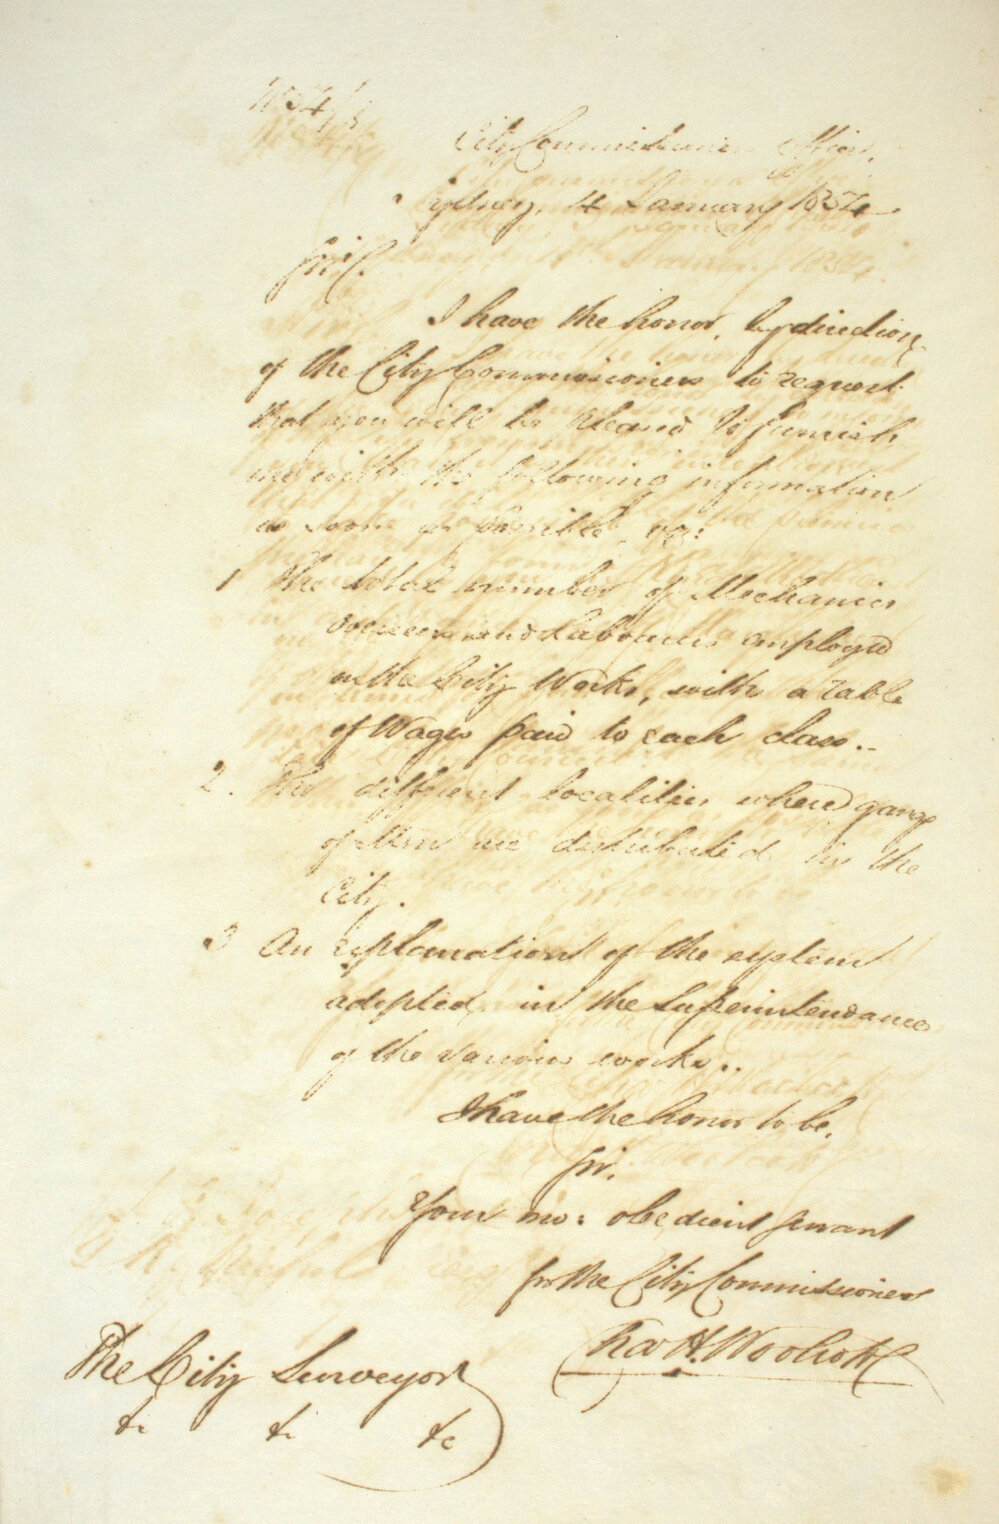 No 54/13
City Commissioners Office,
Sydney, 4 January 1854
Sir,
I have the honor, by direction
of the City Commissioners to request
that you will be pleased to furnish
me with the following information
as soon as possible, viz:
1 The total number of Mechanics
overseers and Labourers employed
on the City Works, with a table
of Wages paid to each class..
2. The different localities where gangs
of Men are distributed in the
City.
3 An explanation of the system
adopted in the Superintendance
of the various works..
I have the honor to be,
Sir,
Your mo: obedient servant
for the City Commissioners
Chas H. Woolcott
The City Surveyor
&c &c &c